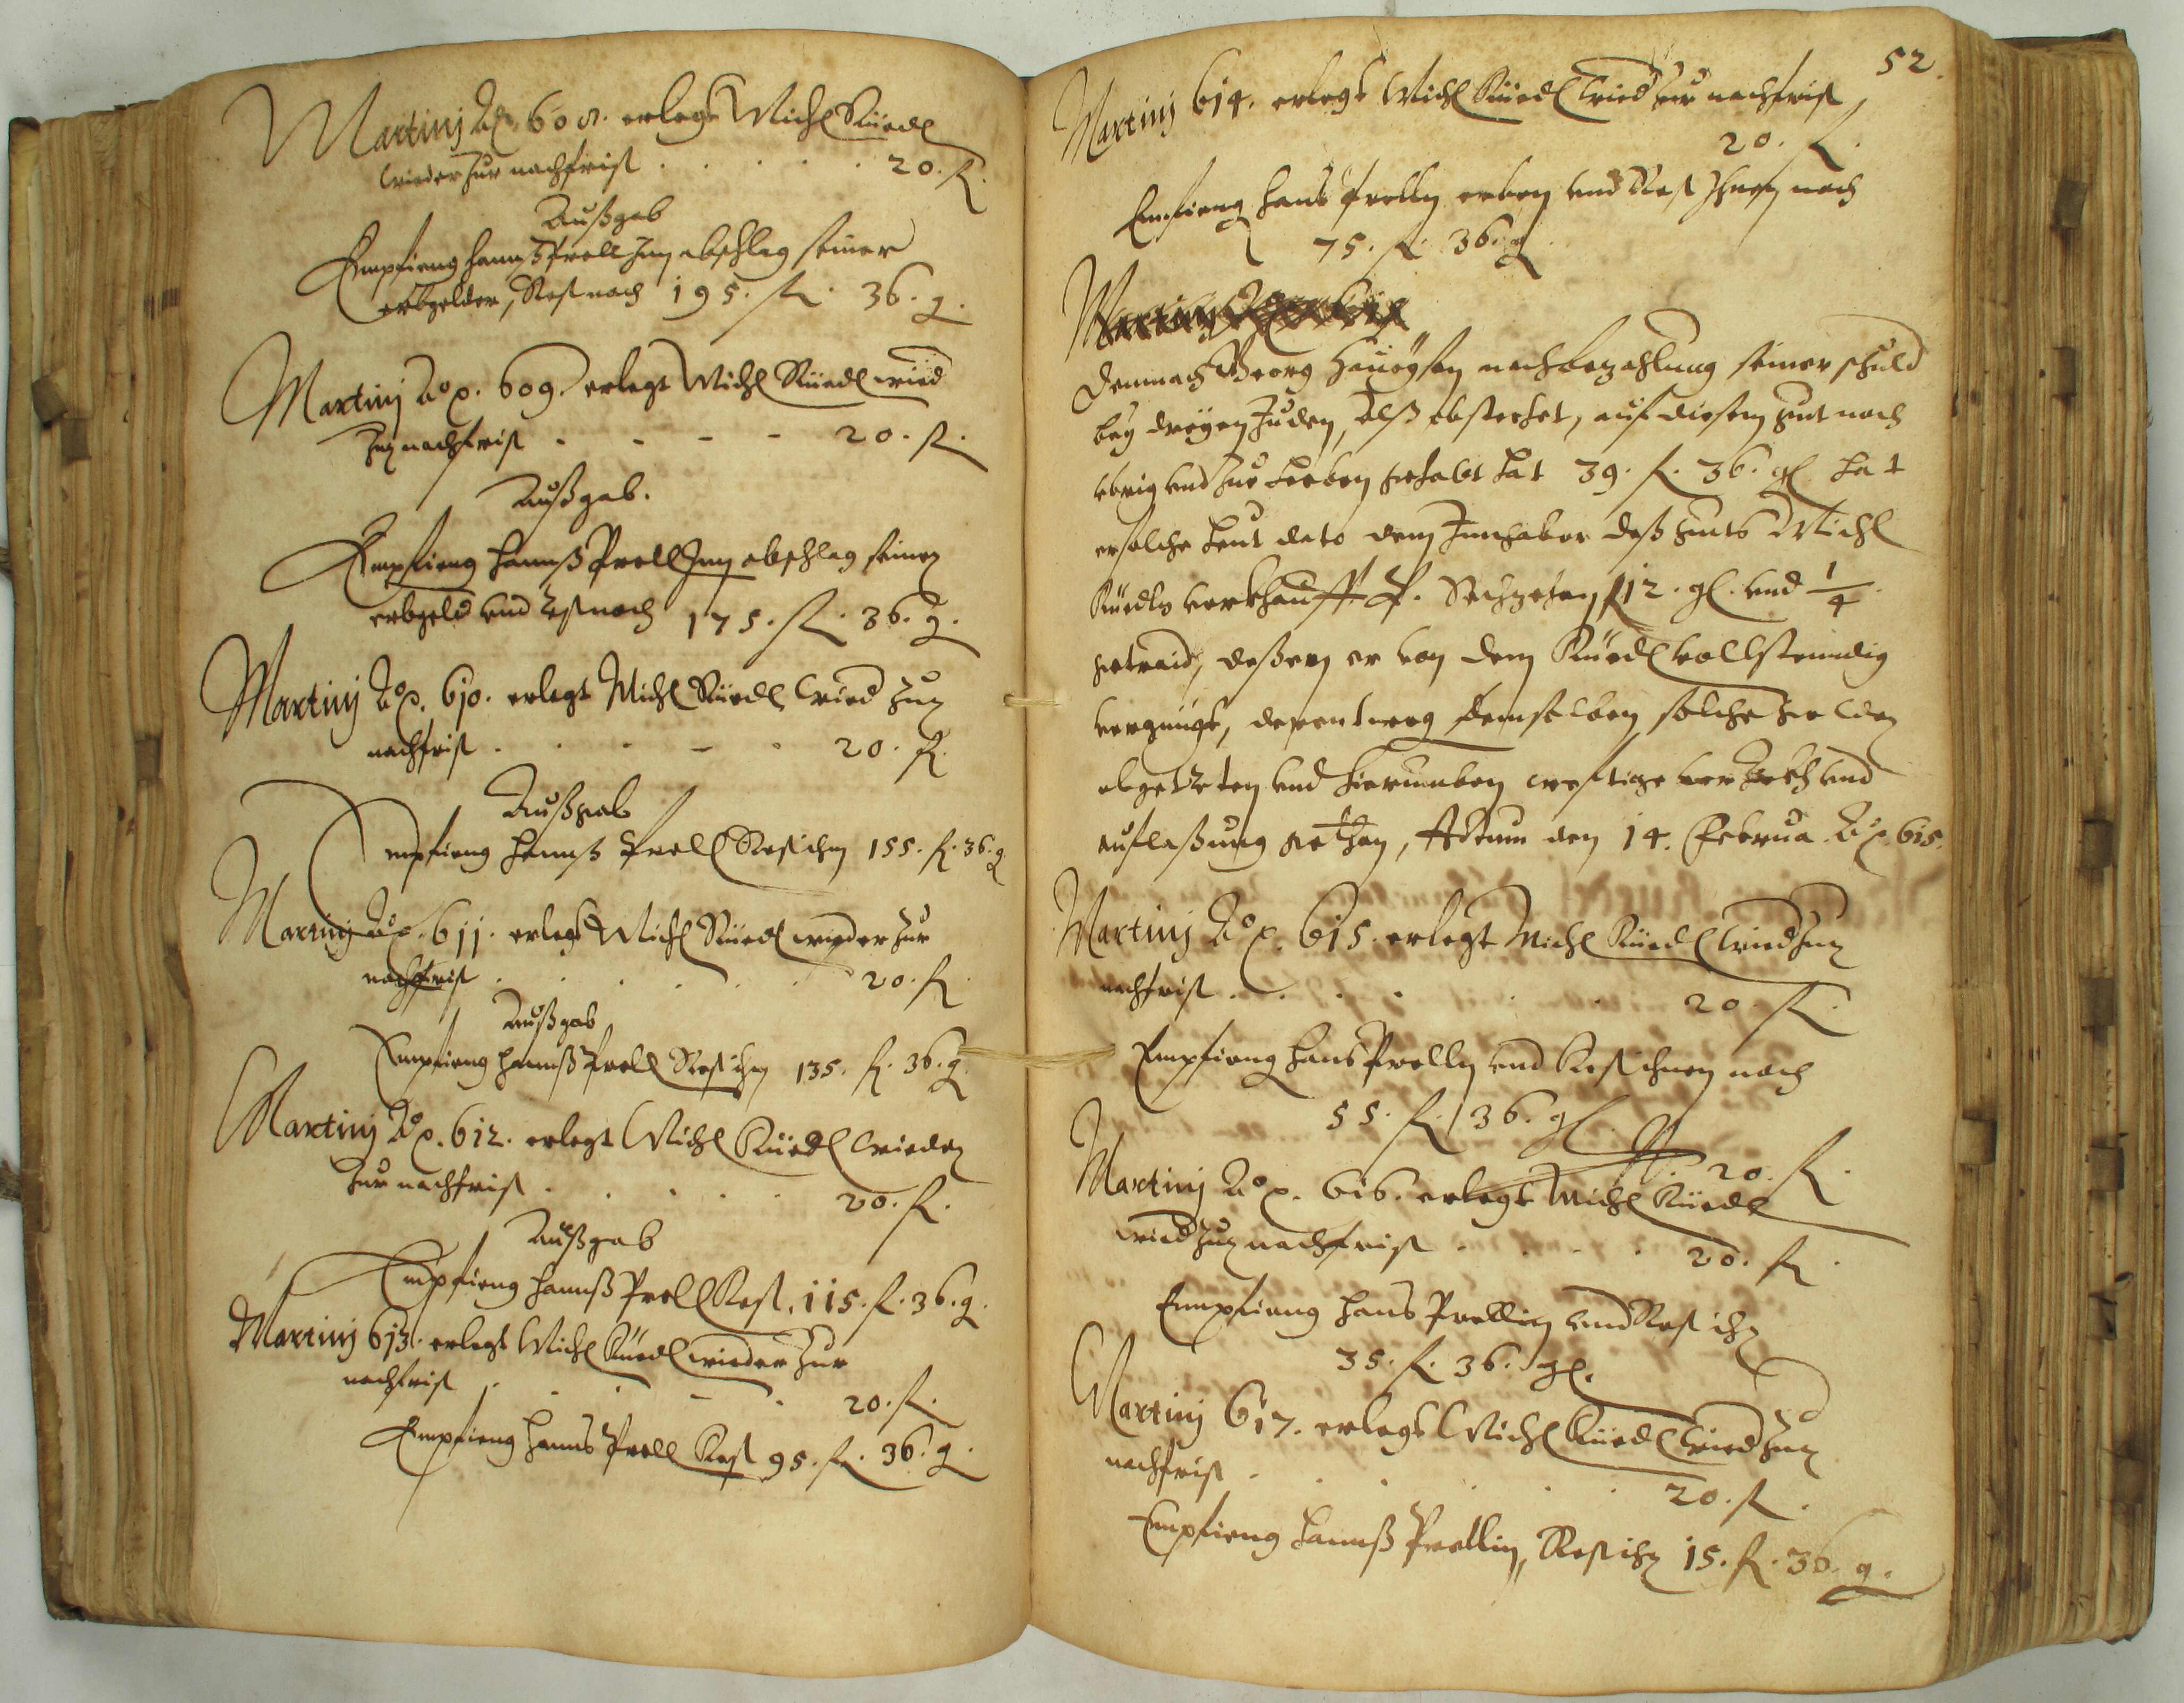 Martinj Aō 608. erlegt Michl Rüedl
wieder zur nachfrist . . . . . 20. fl.
Außgab
Empfieng hannß Prell Inn abschlag seiner
erbgelder, Rest noch 195. fl. 36. gl.
Martinj Aō 609. erlegt Michl Rüedl wied
zur nachfrist - - - - 20. fl.
Außgab.
Empfieng hannß Prell Inn abschlag seiner
erbgeld vnd rest noch 175. fl. 36. gl.
Martinj Aō 610. erlegt Michl Rüedl wied zur
nachfrist . . . - . 20. fl.
Außgab
Empfieng hannß Prell Rest ihm 155. fl. 36. gl.
Martinj Aō 611. erlegt Michl Rüedl wieder zur
nachfrist . . . . . . 20. fl.
Außgab
Empfieng hannß Prell Rest ihm 135. fl. 36. gl.
Martinj Aō 612. erlegt Michl Rüedl wieder
zur nachfrist . . . . . 20. fl.
Außgab
Empfieng hannß Prell Rest. 115. fl. 36. gl.
Martinj 613. erlegt Michl Rüedl wieder zur
nachfrist . . . - . 20. fl.
Empfieng hanns Prell Rest 95. fl. 36. gl.
52.
Martinj 614. erlegt Michl Rüedl wied zur nachfrist,
20. fl.
Empfieng hans Prelln erben vnd Rest Ihnen noch
75. fl. 36. gl.
Martinj
Demnach Georg nach bezahlung seiner schuld
bey dreyen Juden, alß abstehet, auf diesem gut noch
vbrig vnd zue heben gehabt hat 39. fl. 36. gl. hat
er solche heut dato dem Innhaber deß guts Michl
Rüedln verkhaufft p. Sechzehen fl 12. gl. vnd 1/4
getraid, deßen er von dem Rüedl vollstendig
vergnügt, derentweg demselben solche gelder
abgetreten vnd hierumben verzich vnd
auflaßung gethan, Actum den 14. Februa. Aō 615.
Martinj Aō 615. erlegt Michl Rüedl wied zur
nachfrist . . . . . . 20. fl.
Empfieng hans Prelln vnd Rest ihnen noch
55. fl. 36. gl.
20. fl.
Martinj Aō 616. erlegt Michl Rüedl
wied zur nachfrist . . . . 20. fl.
Empfieng hans Prellin vnd Rest ihr
35. fl. 36. gl.
Martinj 617. erlegt Michl Rüedl wied zur
nachfrist . . . . . 20. fl.
Empfieng hannß Prellin, Rest ihr 15. fl. 36. gl.